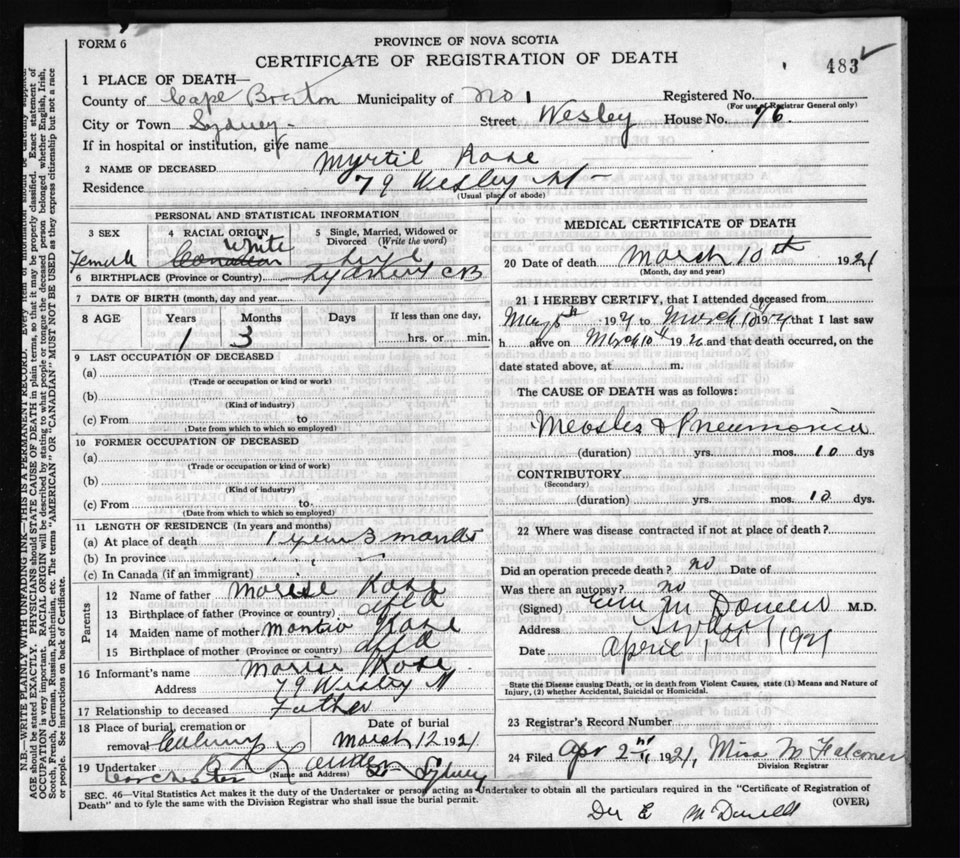 FORM 6
PROVINCE OF NOVA SCOTIA
CERTIFICATE OF REGISTRATION OF DEATH
483
1 PLACE OF DEATH—
County of Cape Breton Municipality of No 1 Registered No.
(For use of Registrar General only)
City or Town Sydney Street Wesley House No. 76
If in hospital or institution, give name
2 NAME OF DECEASED Myrtil Rose
Residence 79 Wesley St
(Usual place of abode)
PERSONAL AND STATISTICAL INFORMATION
3 SEX 4 RACIAL ORIGIN 5 Single, Married, Widowed or Divorced (Write the word)
Female White Canadian
6 BIRTHPLACE (Province or Country) CB
7 DATE OF BIRTH (month, day and year)
8 AGE Years Months Days If less than one day,
1 3 hrs. or min.
9 LAST OCCUPATION OF DECEASED
(a)
(Trade or occupation or kind or work)
(b)
(Kind of industry)
(c) From to
(Date from which to which so employed)
10 FORMER OCCUPATION OF DECEASED
(a)
(Trade or occupation or kind or work)
(b)
(Kind of industry)
(c) From to
(Date from which to which so employed)
11 LENGTH OF RESIDENCE (In years and months)
(a) At place of death 1 year 3 months
(b) In province
(c) In Canada (if an immigrant)
Parents
12 Name of father Rose
13 Birthplace of father (Province or country)
14 Maiden name of mother Rose
15 Birthplace of mother (Province or country)
16 Informant's name Rose
Address 79 Wesley St
17 Relationship to deceased Father
18 Place of burial, cremation or removal Date of burial
March 12 1921
19 Undertaker
(Name and Address) Sydney
MEDICAL CERTIFICATE OF DEATH
20 Date of death March 10th 1921
(Month, day and year)
21 I HEREBY CERTIFY, that I attended deceased from
192 to March 10 192 that I last saw
h alive on March 10th 192 and that death occurred, on the
date stated above, at m.
The CAUSE OF DEATH was as follows:
Measles & Pneumonia
(duration) yrs. mos. 10 dys
CONTRIBUTORY
(Secondary)
(duration) yrs. mos. 10 dys.
22 Where was disease contracted if not at place of death?
Did an operation precede death? no Date of
Was there an autopsy? no
(Signed) M.D.
Address Sydney
Date April 1st 1921
State the Disease causing Death, or in death from Violent Causes, state (1) Means and Nature of
Injury, (2) whether Accidental, Suicidal or Homicidal.
23 Registrar's Record Number
24 Filed Apr 2nd 1921, Miss M Falconer
Division Registrar
SEC. 46—Vital Statistics Act makes it the duty of the Undertaker or person acting as Undertaker to obtain all the particulars required in the "Certificate of Registration of
Death" and to fyle the same with the Division Registrar who shall issue the burial permit. (OVER)
N.B.—WRITE PLAINLY WITH UNFADING INK—THIS IS A PERMANENT RECORD. Every item of information should be carefully supplied.
AGE should be stated EXACTLY. PHYSICIANS should STATE CAUSE OF DEATH in plain terms, so that it may be properly classified. Exact statement of
OCCUPATION is very important. RACIAL ORIGIN will be described by stating to what people or tongue the deceased person belonged, whether English, Irish,
Scotch, French, German, Russian, Ruthenian, etc. The terms "AMERICAN" OR "CANADIAN" MUST NOT BE USED as they express citizenship but not a race
or people. See instructions on back of Certificate.